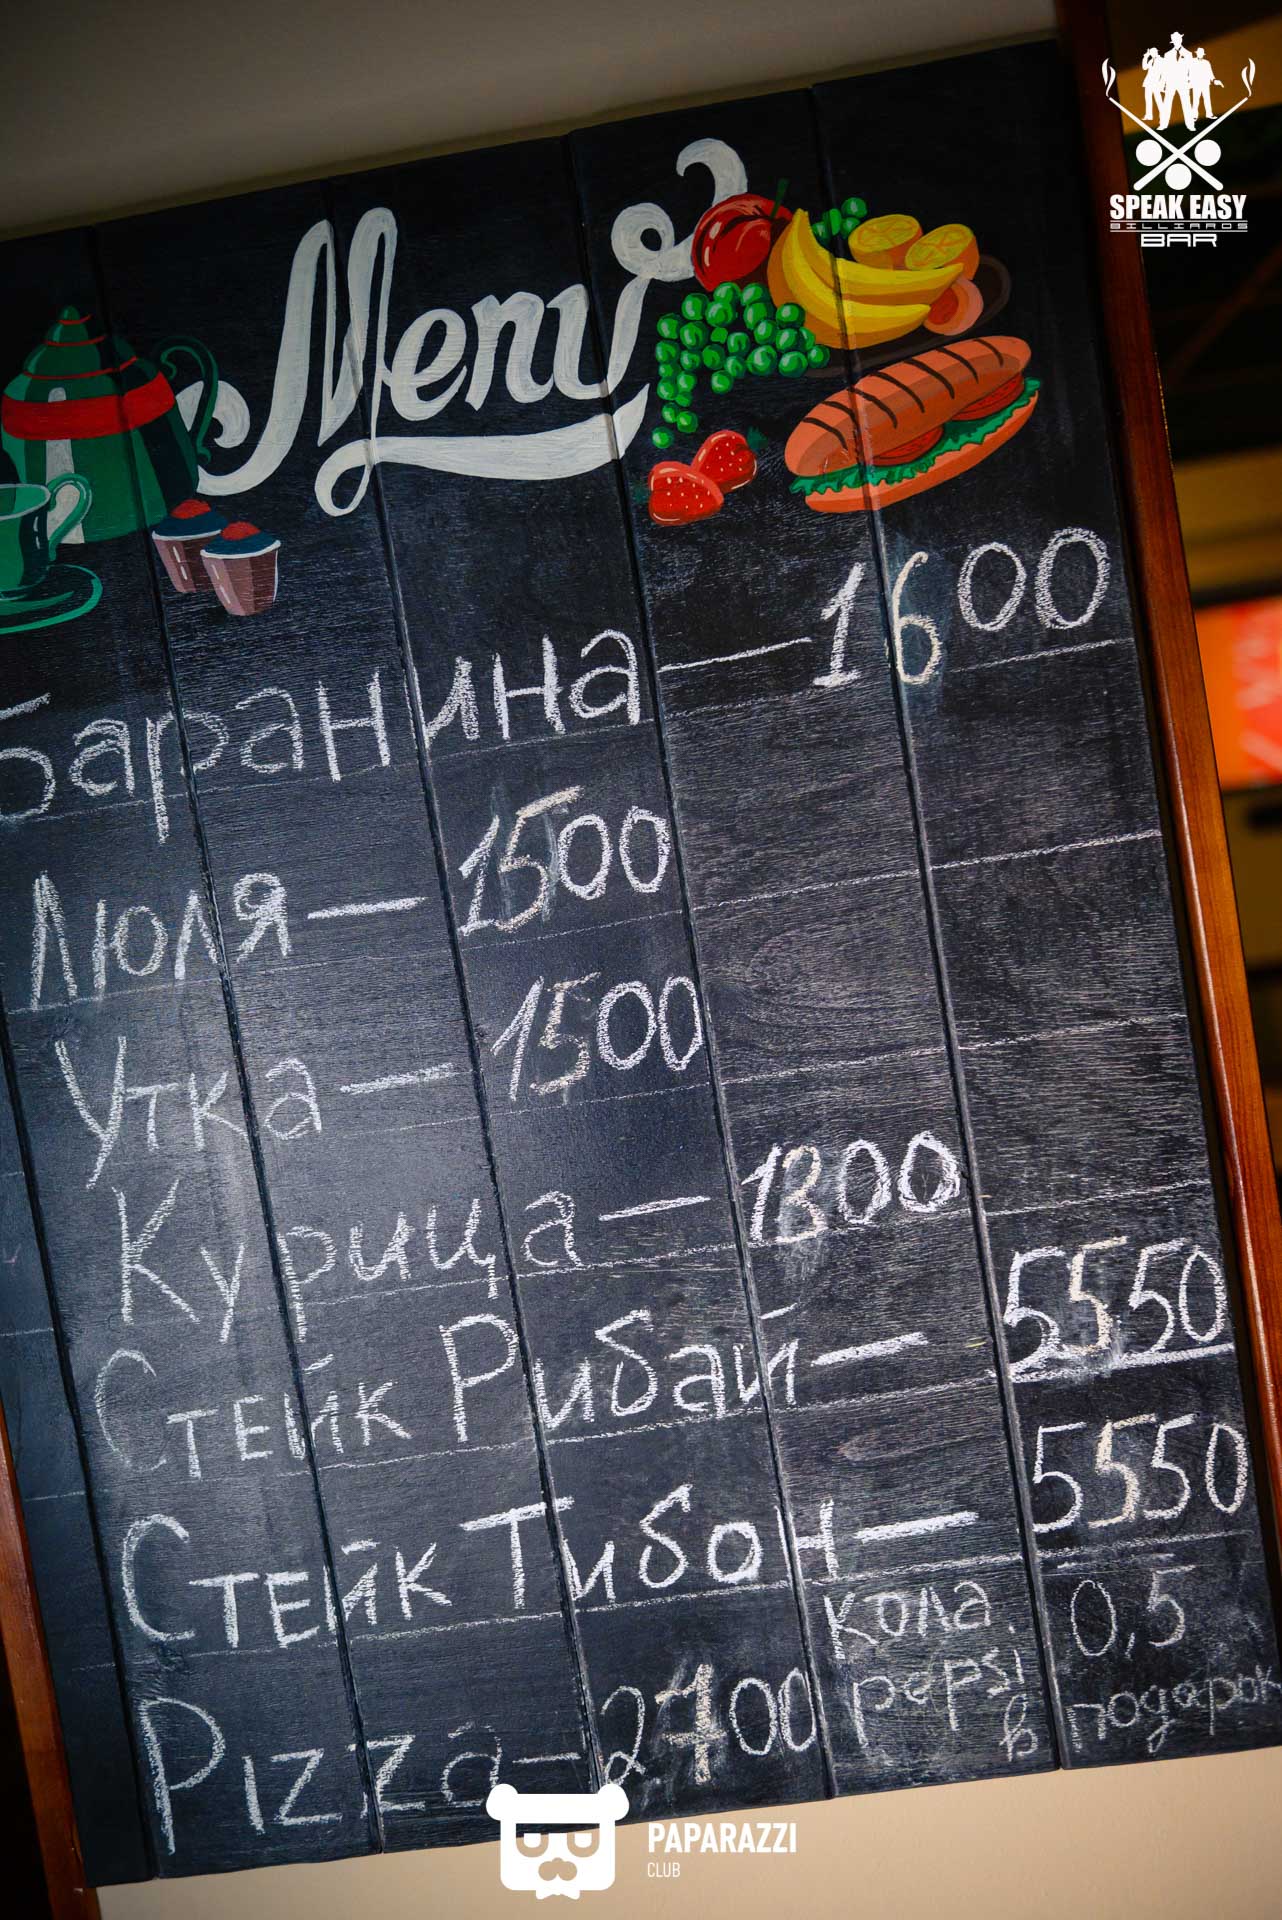 SPEAK EASY
BILLIARDS
BAR
Menu
Баранина — 1600
Люля — 1500
Утка — 1500
Курица — 1300
Стейк Рибай — 5550
Стейк Тибон — 5550
Pizza - 2700
кола 0,5
pepsi
в подарок
PAPARAZZI
CLUB